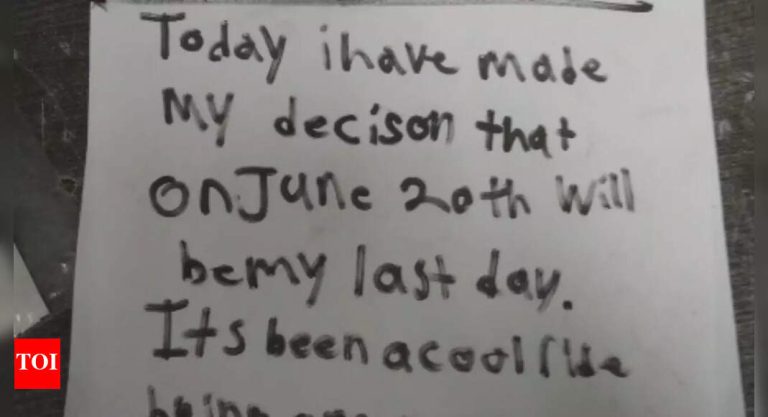 Today i have made
My decison that
on June 20th will
be my last day.
Its been a cool ride
being
TOI